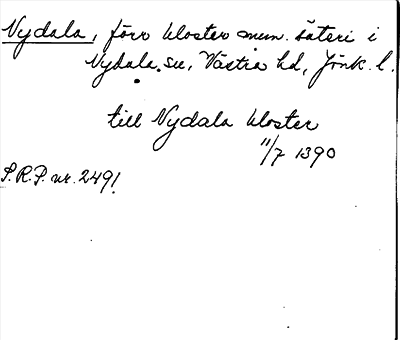 Nydala, förr kloster num. säteri i
Nydala su, Västra hd, Jönk. l.
till Nydala kloster
11/7 1390
S.R.P. nr. 2491